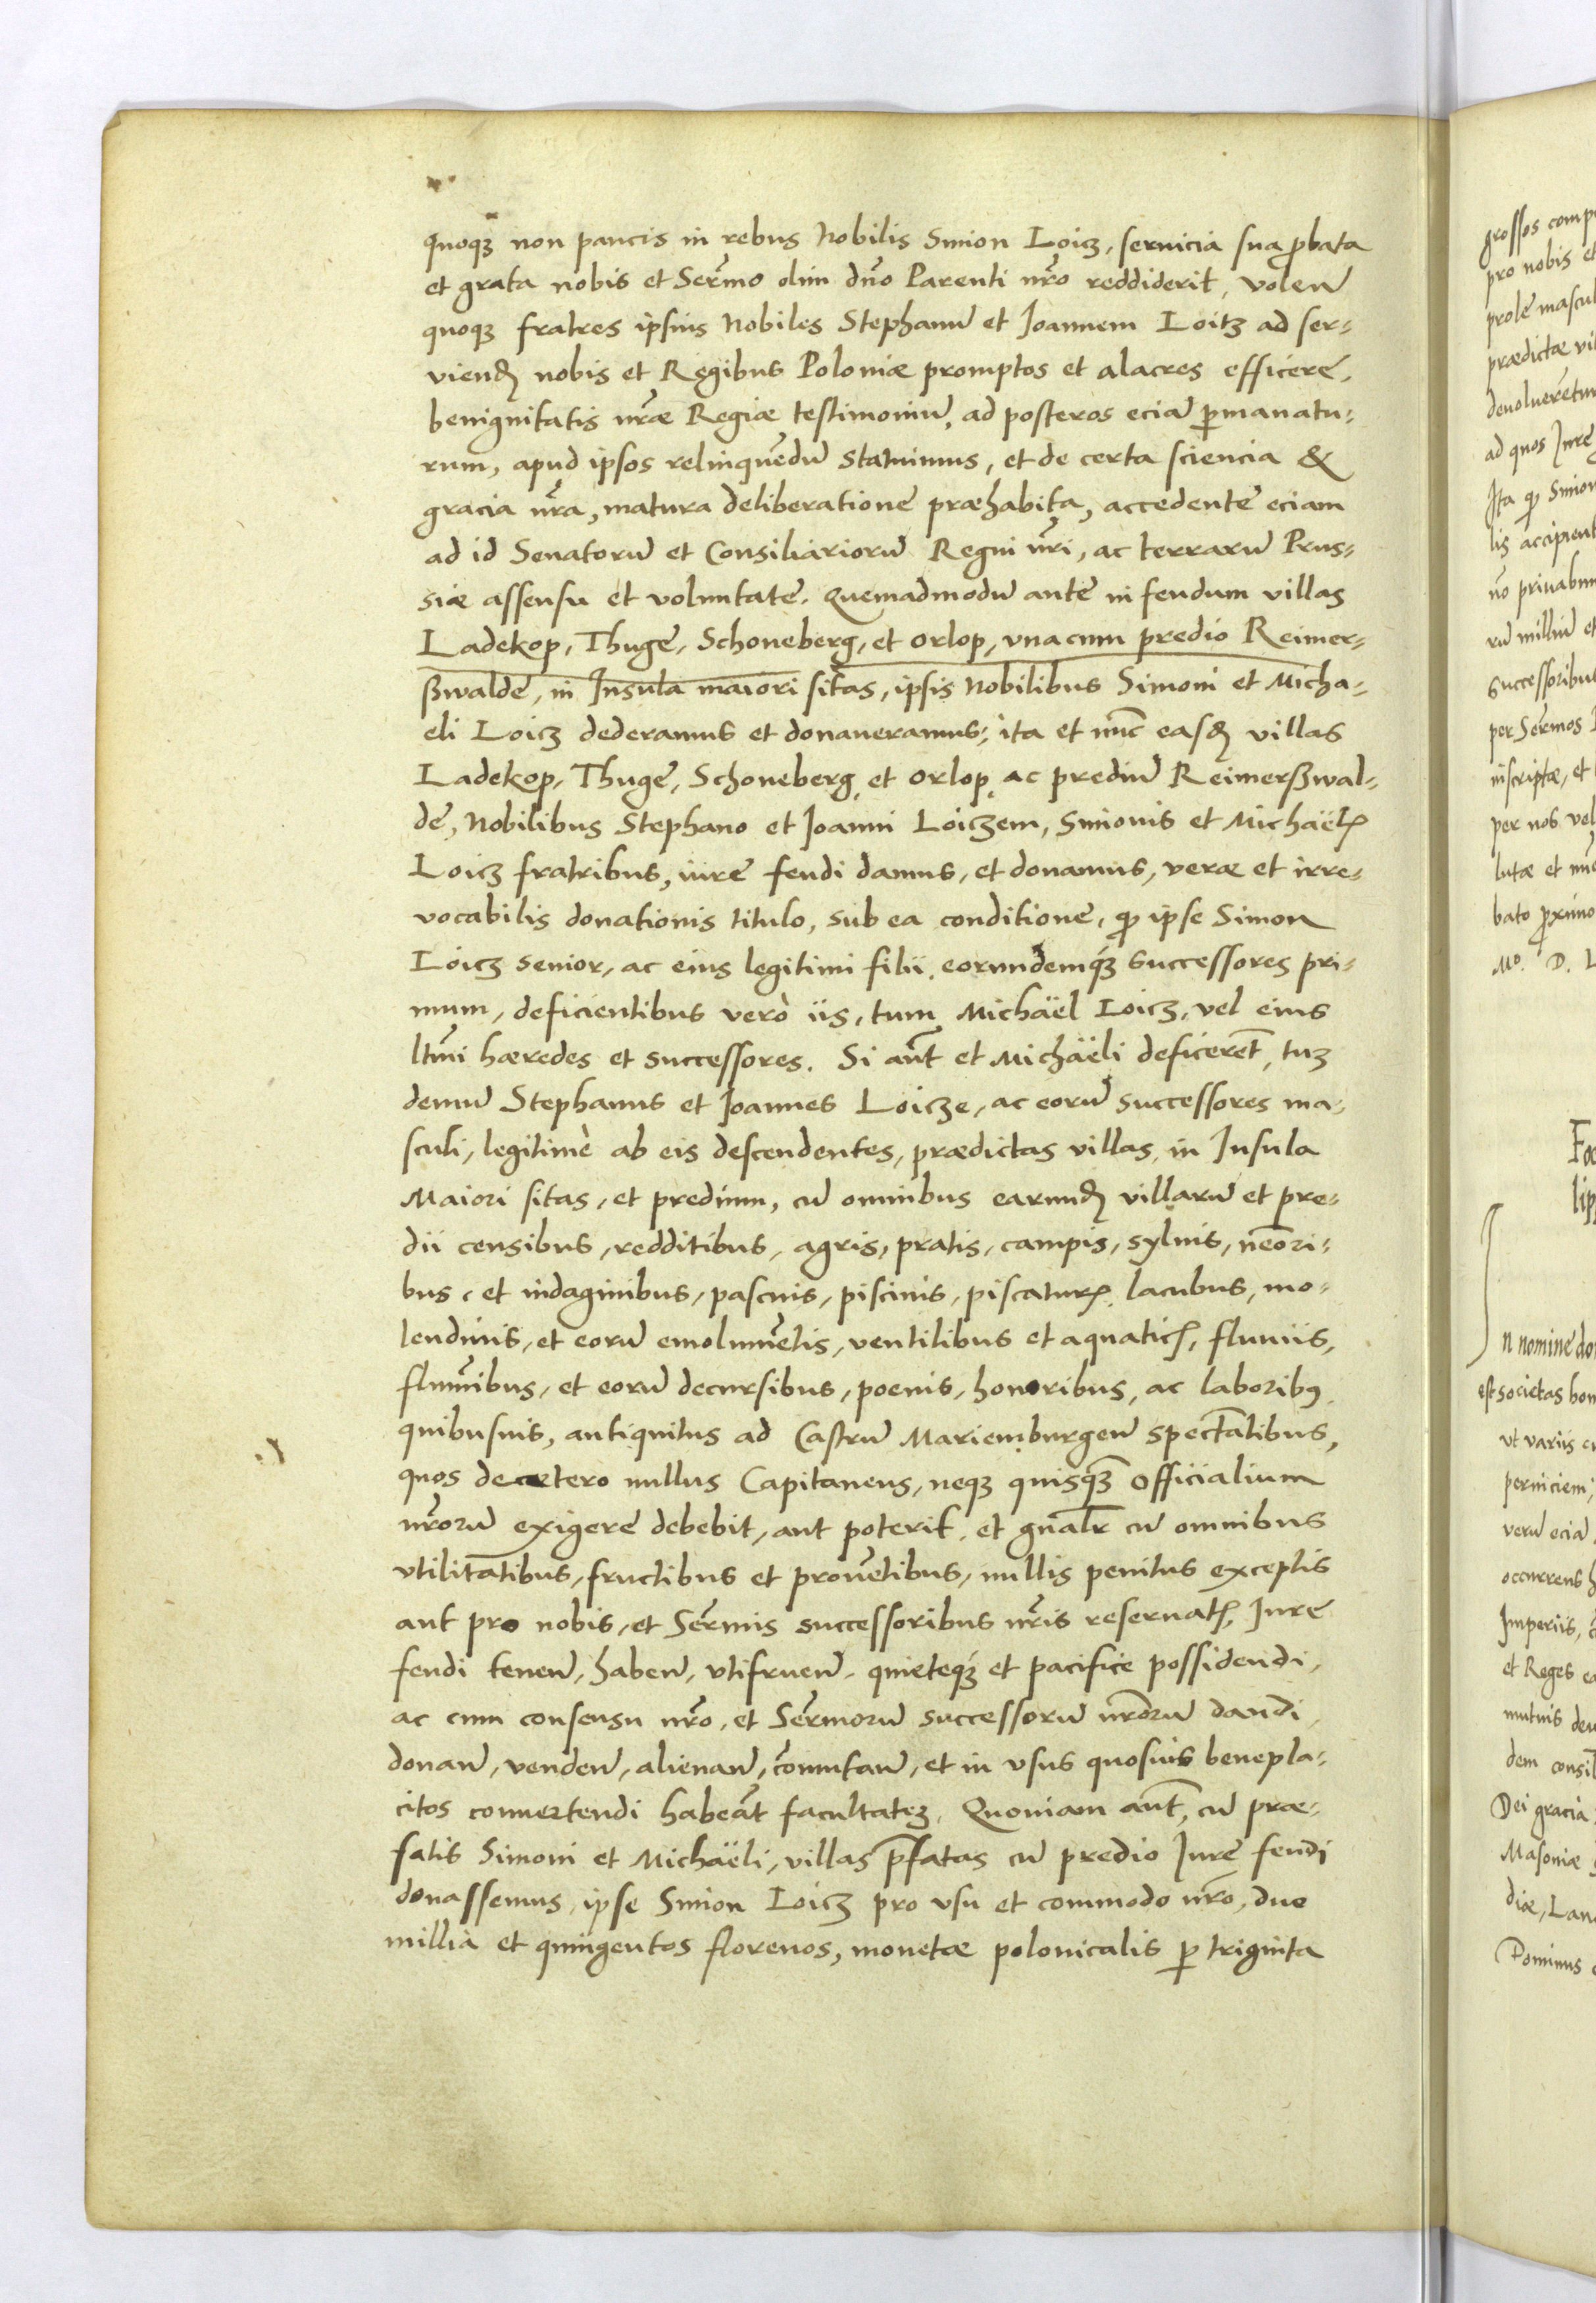 quoqȝ non paucis in rebus Nobilis Simon Loicz, seruicia sua ꝓbata
et grata nobis et Serm̃o olim dño Parenti nr̃o reddiderit, volen̄
quoqȝ fratres ipsius Nobiles Stephanū et Joannem Loitz ad ser⸗
viend̃ nobis et Regibus Poloniæ promptos et alacres efficere,
benignitatis nr̃æ Regiæ testimoniū, ad posteros eciā ꝑmanatu⸗
rum, apud ipsos relinquẽdū statuimus, et de certa sciencia &
gracia nr̃a, matura deliberatione præhabita, accedente eciam
ad id Senatorū et Consiliariorū Regni nr̃i, ac terrarū Prus⸗
siæ assensu et voluntate. Quemadmodū ante in feudum villas
Ladekop, Thuge, Schoneberg, et Orlop, vna cum predio Reimer⸗
ßwalde, in Insula maiori sitas, ipsis Nobilibus Simoni et Micha⸗
eli Loicz dederamus et donaueramus; ita et nũc easd̃ villas
Ladekop, Thuge, Schoneberg et Orlop, ac prediū Reimerßwal⸗
de, Nobilibus Stephano et Joanni Loiczem, Simonis et Michaëlꝭ
Loicz fratribus, iure feudi damus, et donamus, veræ et irre⸗
vocabilis donationis titulo, sub ea conditione, ꝙ ipse Simon
Loicz senior, ac eius legitimi filii, eorundemqȝ successores pri⸗
mum, deficientibus verò iis, tum Michaël Loicz, vel eius
ltm̃i hæredes et successores. Si aũt et Michaëli deficerẽt, tuȝ
demū Stephanus et Joannes Loicze, ac eorū successores ma⸗
sculi, legitimè ab eis descendentes, prædictas villas, in Insula
Maiori sitas, et predium, cū omnibus earund̃ villarū et pre⸗
dii censibus, redditibus, agris, pratis, campis, syluis, nẽori⸗
bus, et indaginibus, pascuis, piscinis, piscaturꝭ, lacubus, mo⸗
lendinis, et eorū emolumẽtis, ventilibus et aquaticꝭ, fluuiis,
flumĩbus, et eorū decursibus, poenis, honoribus, ac laboribꝰ
quibusuis, antiquitus ad Castrū Mariemburgen̄ spectãtibus,
quos de cætero nullus Capitaneus, neqȝ quisqȝ̃ Officialium
nr̃orū exigere debebit, aut poterit, et gñalr̃ cū omnibus
vtilitatibus, fructibus et prouẽtibus, nullis penitus exceptis
aut pro nobis, et Serm̃is successoribus nr̃is reseruatꝭ, Jure
feudi tenen̄, haben̄, vtifruen̄, quieteqȝ et pacifice possidendi,
ac cum consensu nr̃o, et Serm̃orū successorū nr̃orū dandi,
donan̄, venden̄, alienan̄, cõmutan̄, et in vsus quosuis benepla⸗
citos conuertendi habeãt facultateȝ. Quoniam aũt, cū præ⸗
fatis Simoni et Michaëli, villas p̃fatas cū predio Jure feudi
donassemus, ipse Simon Loicz pro vsu et commodo nr̃o, duo
millia et quingentos florenos, monetæ polonicalis ꝑ triginta
grossos comp
pro nobis et
prole mascul
prædictæ vil
deuoluerẽtur
ad quos Jure
Ita ꝙ Simon
lis accipient
nõ priuabun
rū milliū et
successoribus
per Serm̃os
inscriptæ, et
per nos vel
lutæ et nũc
bato ꝓximo
Mº. D. L
Foe
lip
In nomine do
est societas hom
vt variis
perniciem;
verū eciā
occurrens
Imperiis,
et Reges
mutuis
dem consil
Dei gracia
Masoniæ
diæ, Lan
Dominus